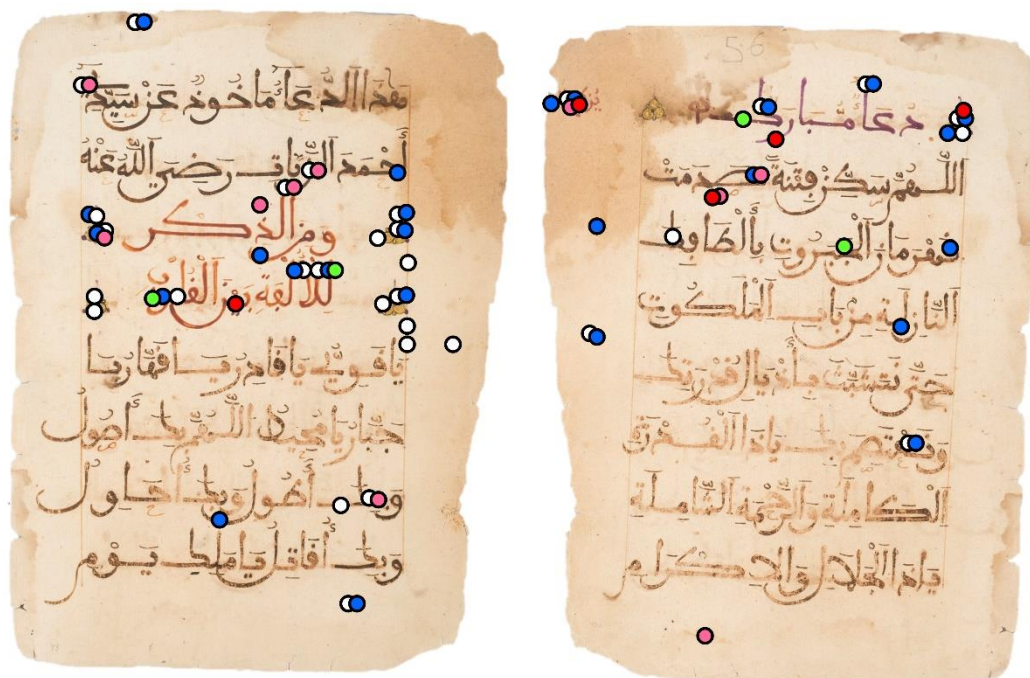 56
دعا مبارك
اللهم سكن فتنة صدمت
قهرمان الجبروت بألطافك
النازلة من باب الملكوت
حتى نتشبث بأذيال قدرتك
ونعتصم بك ياذا
الكاملة والرحمة الشاملة
ياذا الجلال والاكرام
هذا الدعاء ماخوذ عن سيد
أحمد رضي الله عنه
ومن الذكر
للالفة بين
يا قوي يا قادر يا قهار يا
جبار يا مجيد اللهم بك أصول
وبك أطول وبك أحاول
وبك أقاتل يا ملك يوم